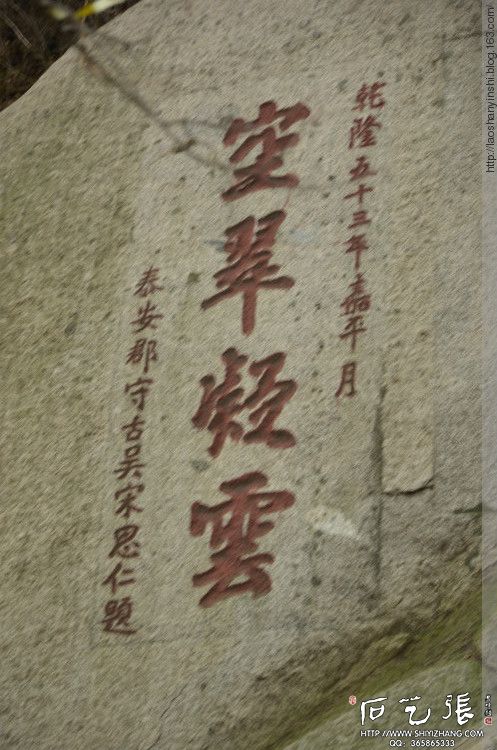 乾隆五十三年嘉平月
空翠凝雲
泰安郡守古吳宋思仁題
http://laoshanyinshi.blog.163.com/
石艺張
HTTP://WWW.SHIYIZHANG.COM
QQ: 365865333